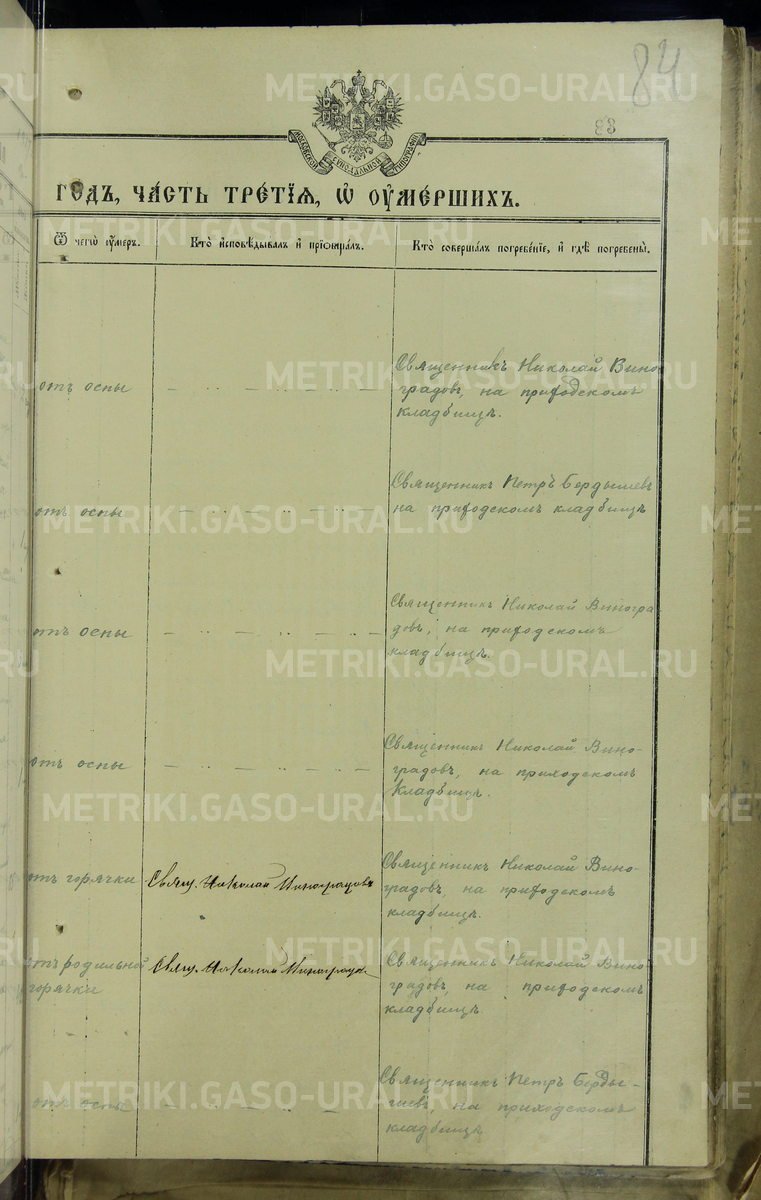 84
83
МОСКОВСКОЙ СѴНОДАЛЬНОЙ ТИПОГРАФІИ
ГОДЪ, ЧА́СТЬ ТРЕ́ТІѦ, Ѡ҆ ОУ҆МЕ́РШИХЪ.
Ѿ чегѡ̀ ᲂу҆́меръ.
Кто̀ и҆сповѣ́дывалъ и҆ прїѡбща́лъ.
Кто̀ соверша́лъ погребе́нїе, и҆ гдѣ̀ погребены̀.
отъ оспы
Священникъ Николай Вино-
градовъ, на приходскомъ
кладбищѣ.
отъ оспы
Священникъ Петръ Бердышевъ
на приходскомъ кладбищѣ
отъ оспы
Священникъ Николай Виногра
довъ, на приходскомъ
кладбищѣ.
отъ оспы
Священникъ Николай Вино-
градовъ, на приходскомъ
кладбищѣ.
отъ горячки
Свящ. Николай Виноградовъ
Священникъ Николай Вино-
градовъ, на приходскомъ
кладбищѣ.
отъ родильной
горячки
Свящ. Николай Виноградовъ
Священникъ Николай Вино-
градовъ, на приходскомъ
кладбищѣ
отъ оспы
Священникъ Петръ Берды-
шевъ, на приходскомъ
кладбищѣ
METRIKI.GASO-URAL.RU